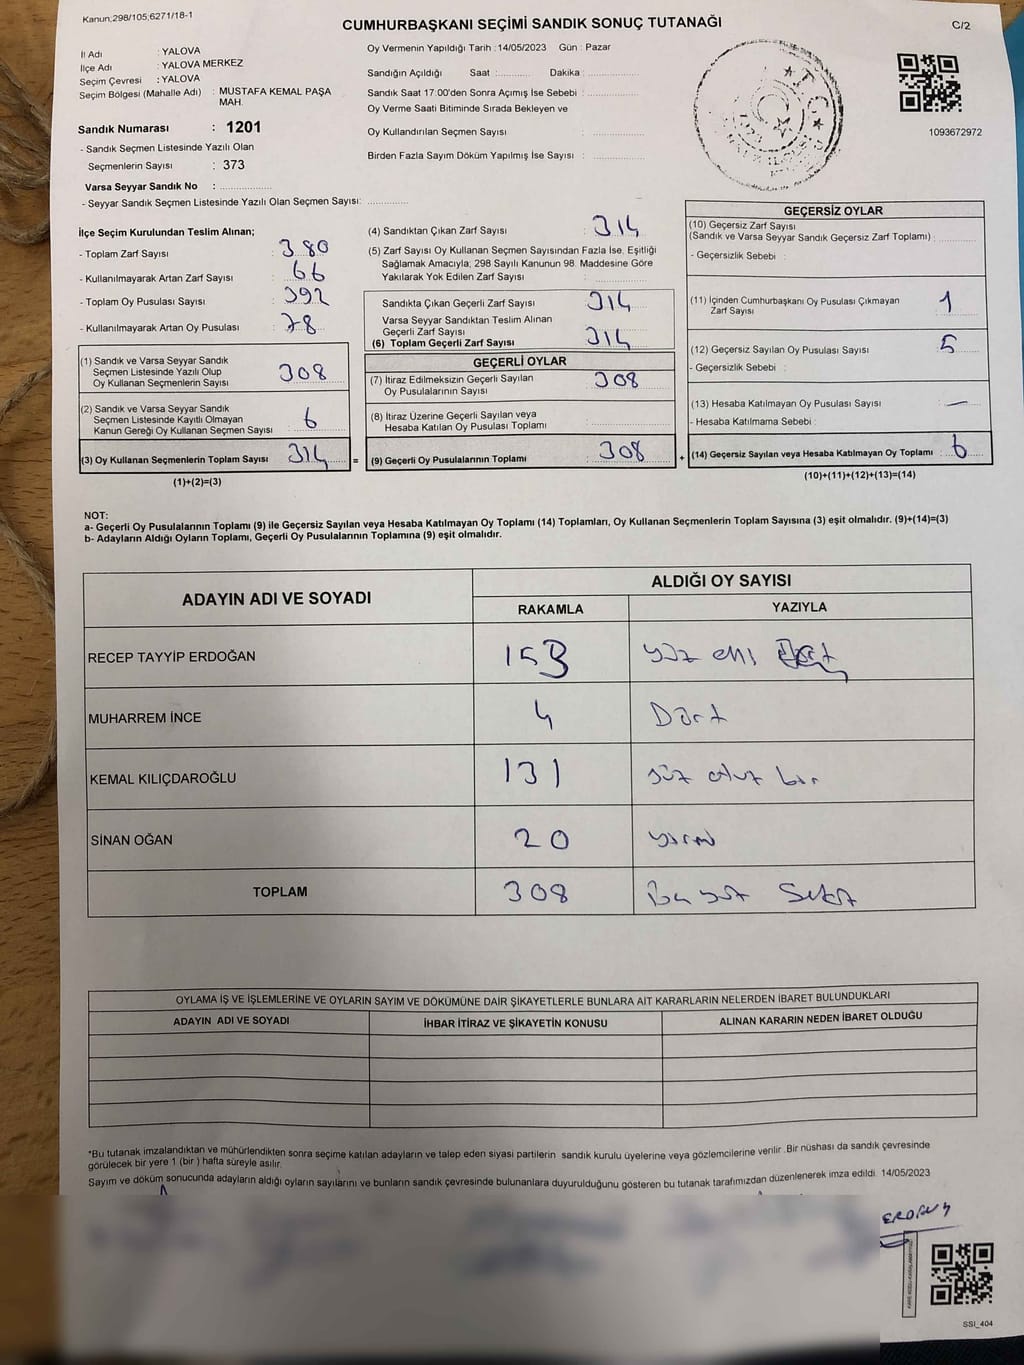 Kanun;298/105;6271/18-1
CUMHURBAŞKANI SEÇİMİ SANDIK SONUÇ TUTANAĞI
C/2
İl Adı : YALOVA
İlçe Adı : YALOVA MERKEZ
Seçim Çevresi : YALOVA
Seçim Bölgesi (Mahalle Adı) : MUSTAFA KEMAL PAŞA
MAH.
Sandık Numarası : 1201
- Sandık Seçmen Listesinde Yazılı Olan
Seçmenlerin Sayısı : 373
Varsa Seyyar Sandık No : ....................
- Seyyar Sandık Seçmen Listesinde Yazılı Olan Seçmen Sayısı: ...............
Oy Vermenin Yapıldığı Tarih :14/05/2023 Gün : Pazar
Sandığın Açıldığı Saat :............ Dakika : ......................
Sandık Saat 17:00'den Sonra Açımış İse Sebebi : ......................
Oy Verme Saati Bitiminde Sırada Bekleyen ve
Oy Kullandırılan Seçmen Sayısı : ......................
Birden Fazla Sayım Döküm Yapılmış İse Sayısı : ......................
T.C.
1093672972
İlçe Seçim Kurulundan Teslim Alınan;
- Toplam Zarf Sayısı : 380
- Kullanılmayarak Artan Zarf Sayısı : 66
- Toplam Oy Pusulası Sayısı : 392
- Kullanılmayarak Artan Oy Pusulası : 78
(1) Sandık ve Varsa Seyyar Sandık
Seçmen Listesinde Yazılı Olup
Oy Kullanan Seçmenlerin Sayısı : 308
(2) Sandık ve Varsa Seyyar Sandık
Seçmen Listesinde Kayıtlı Olmayan
Kanun Gereği Oy Kullanan Seçmen Sayısı : 6
(3) Oy Kullanan Seçmenlerin Toplam Sayısı : 314
(1)+(2)=(3)
(4) Sandıktan Çıkan Zarf Sayısı : 314
(5) Zarf Sayısı Oy Kullanan Seçmen Sayısından Fazla İse, Eşitliği
Sağlamak Amacıyla, 298 Sayılı Kanunun 98. Maddesine Göre
Yakılarak Yok Edilen Zarf Sayısı : ......................
Sandıkta Çıkan Geçerli Zarf Sayısı : 314
Varsa Seyyar Sandıktan Teslim Alınan
Geçerli Zarf Sayısı
(6) Toplam Geçerli Zarf Sayısı : 314
GEÇERLİ OYLAR
(7) İtiraz Edilmeksizin Geçerli Sayılan
Oy Pusulalarının Sayısı : 308
(8) İtiraz Üzerine Geçerli Sayılan veya
Hesaba Katılan Oy Pusulası Toplamı : ......................
= (9) Geçerli Oy Pusulalarının Toplamı : 308
GEÇERSİZ OYLAR
(10) Geçersiz Zarf Sayısı
(Sandık ve Varsa Seyyar Sandık Geçersiz Zarf Toplamı) : ...............
- Geçersizlik Sebebi :
(11) İçinden Cumhurbaşkanı Oy Pusulası Çıkmayan
Zarf Sayısı : 1
(12) Geçersiz Sayılan Oy Pusulası Sayısı : 5
- Geçersizlik Sebebi :
(13) Hesaba Katılmayan Oy Pusulası Sayısı : —
- Hesaba Katılmama Sebebi :
+ (14) Geçersiz Sayılan veya Hesaba Katılmayan Oy Toplamı : 6
(10)+(11)+(12)+(13)=(14)
NOT:
a- Geçerli Oy Pusulalarının Toplamı (9) ile Geçersiz Sayılan veya Hesaba Katılmayan Oy Toplamı (14) Toplamları, Oy Kullanan Seçmenlerin Toplam Sayısına (3) eşit olmalıdır. (9)+(14)=(3)
b- Adayların Aldığı Oyların Toplamı, Geçerli Oy Pusulalarının Toplamına (9) eşit olmalıdır.
ADAYIN ADI VE SOYADI
ALDIĞI OY SAYISI
RAKAMLA YAZIYLA
RECEP TAYYİP ERDOĞAN 153 yüz elli
MUHARREM İNCE 4 Dört
KEMAL KILIÇDAROĞLU 131 yüz otuz bir
SİNAN OĞAN 20 yirmi
TOPLAM 308 üç yüz Sekiz
OYLAMA İŞ VE İŞLEMLERİNE VE OYLARIN SAYIM VE DÖKÜMÜNE DAİR ŞİKAYETLERLE BUNLARA AİT KARARLARIN NELERDEN İBARET BULUNDUKLARI
ADAYIN ADI VE SOYADI İHBAR İTİRAZ VE ŞİKAYETİN KONUSU ALINAN KARARIN NEDEN İBARET OLDUĞU
*Bu tutanak imzalandıktan ve mühürlendikten sonra seçime katılan adayların ve talep eden siyasi partilerin sandık kurulu üyelerine veya gözlemcilerine verilir. Bir nüshası da sandık çevresinde
görülecek bir yere 1 (bir ) hafta süreyle asılır.
Sayım ve döküm sonucunda adayların aldığı oyların sayılarını ve bunların sandık çevresinde bulunanlara duyurulduğunu gösteren bu tutanak tarafımızdan düzenlenerek imza edildi. 14/05/2023
SSI_404